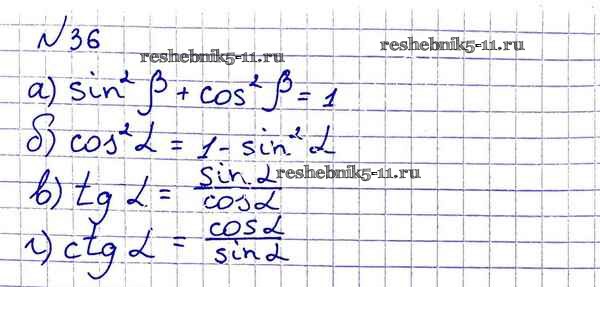 № 36
reshebnik5-11.ru reshebnik5-11.ru
а) sin² β + cos² β = 1
б) cos² α = 1 - sin² α
в) tg α = sin α / cos α reshebnik5-11.ru
г) ctg α = cos α / sin α